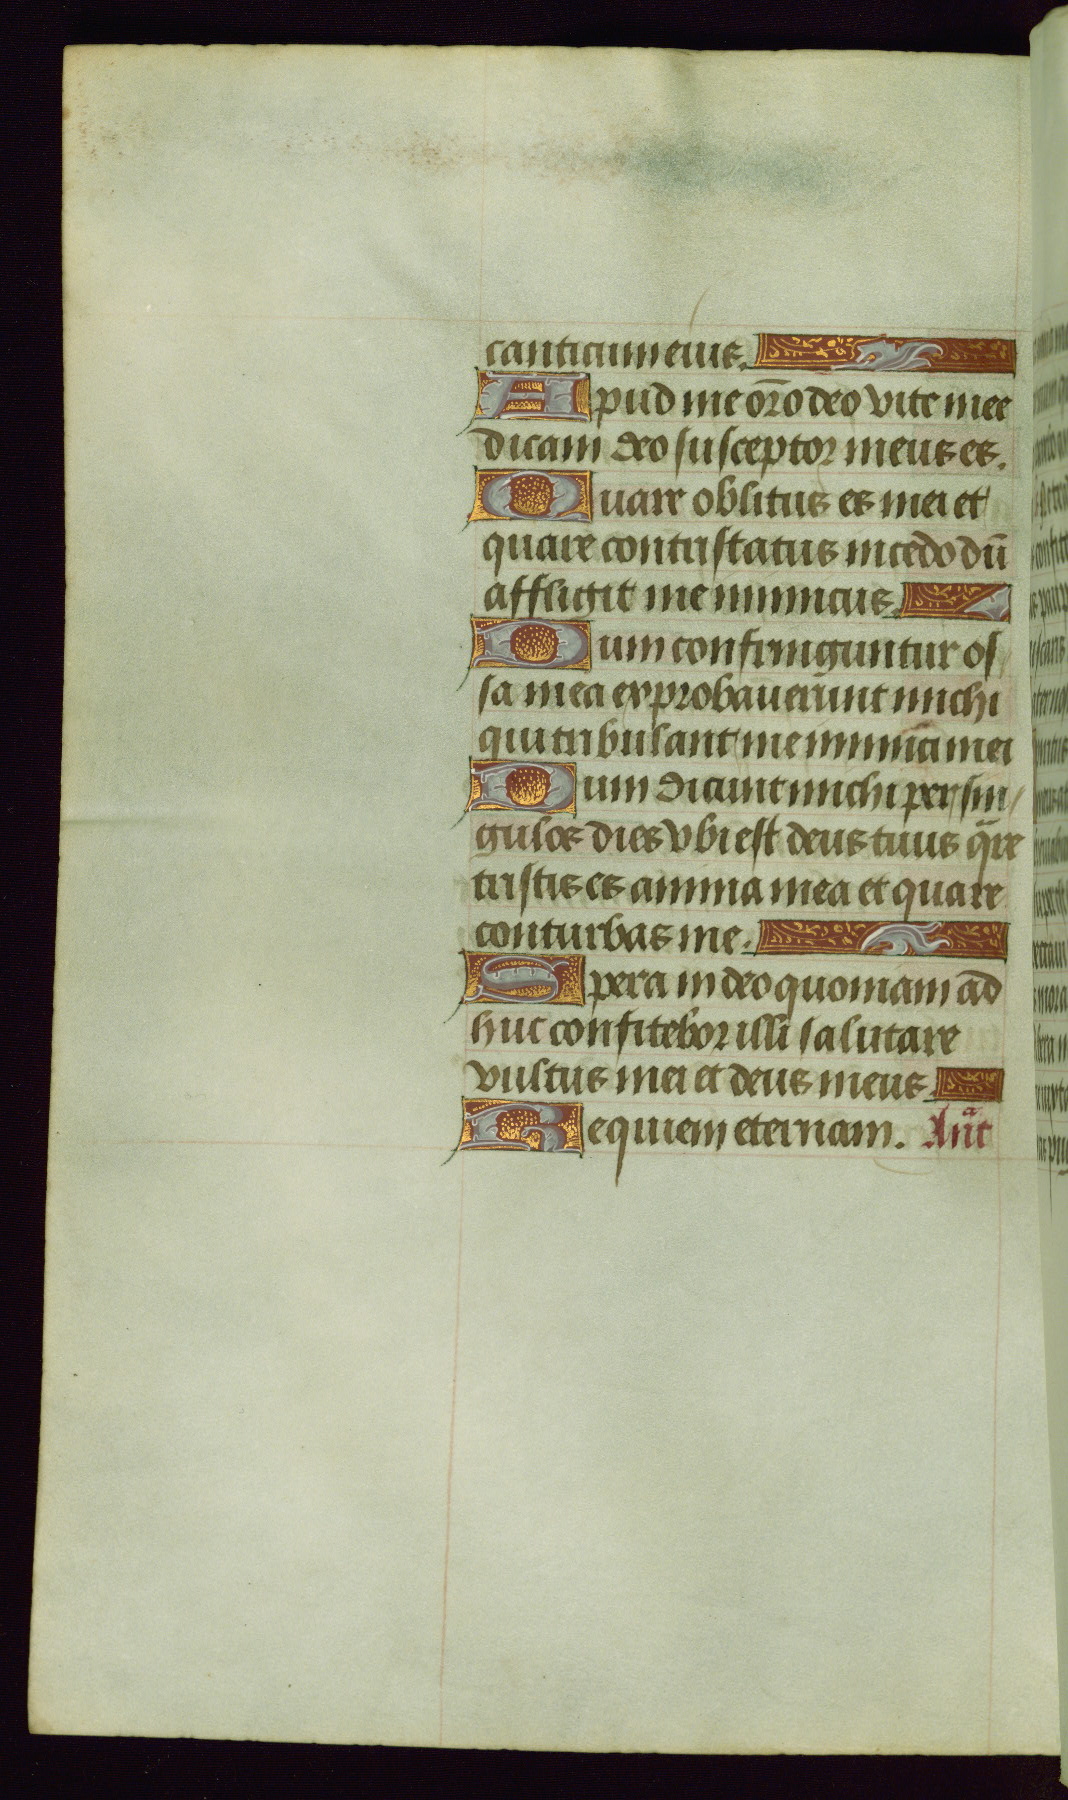 canticum eius.
Apud me or̄o deo vite mee
dicam deo susceptor meus es.
Quare oblitus es mei et
quare contristatus incedo dū
affligit me inimicus.
Dum confringuntur os
sa mea exprobauerunt michi
qui tribulant me inimici mei
Dum dicunt michi per sin
gulos dies vbi est deus tuus qᵃre
tristis es anima mea et quare
conturbas me.
Spera in deo quoniam ad
huc confitebor illi salutare
vultus mei et deus meus.
Requiem eternam. Anᵃt